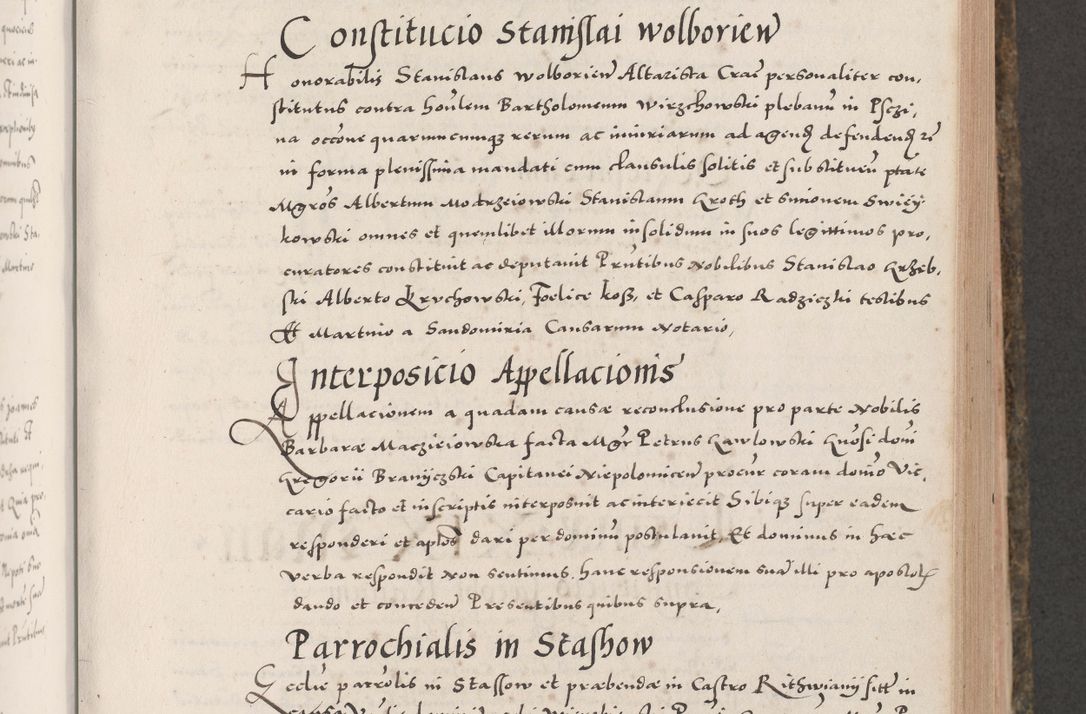 Constitucio Stanislai Wolborien
Honorabilis Stanislaus Wolborien Altarista Crac personaliter con,
stitutus contra honlem Bartholomeum Wirzchowski plebanu in Pschi,
na occone quarumcumq rerum ac iniuriarum ad agend defendend re
in forma plenissima mandati cum clausulis solitis et substituen ptate
Mgros Albertum Modrzeiowski Stanislaum Groth et Simonem Swiéy
kowski omnes et quemlibet illorum insolidum in suos legittimos pro,
curatores constituit ac deputauit Pntibus Nobilibus Stanislao Grzeb,
ski Alberto Krychowski, Foelice Koss, et Casparo Radziczki testibus
Et Martino a Sandomiria Causarum Notario,
Interposicio Appellacionis
Appellacionem a quadam causæ reconclusione pro parte Nobilis
Barbaræ Maczieiowska facta Mgr Petrus Gawlowski Gnosi domi
Gregorii Branyczski Capitanei Niepolomicen procur coram domo Vic,
cario facto et in scriptis interposuit ac interiecit Sibiq super eadem
responderi et aplos dari per dominu postulauit, Et dominus in hæc
verba respondit Non sentimus hanc responsionem sua illi pro apostol
dando et conceden Presentibus quibus supra,
Parrochialis in Stashow
Ecclie parrolis in Stassow et præbendæ in Castro Rithwiany sitt in